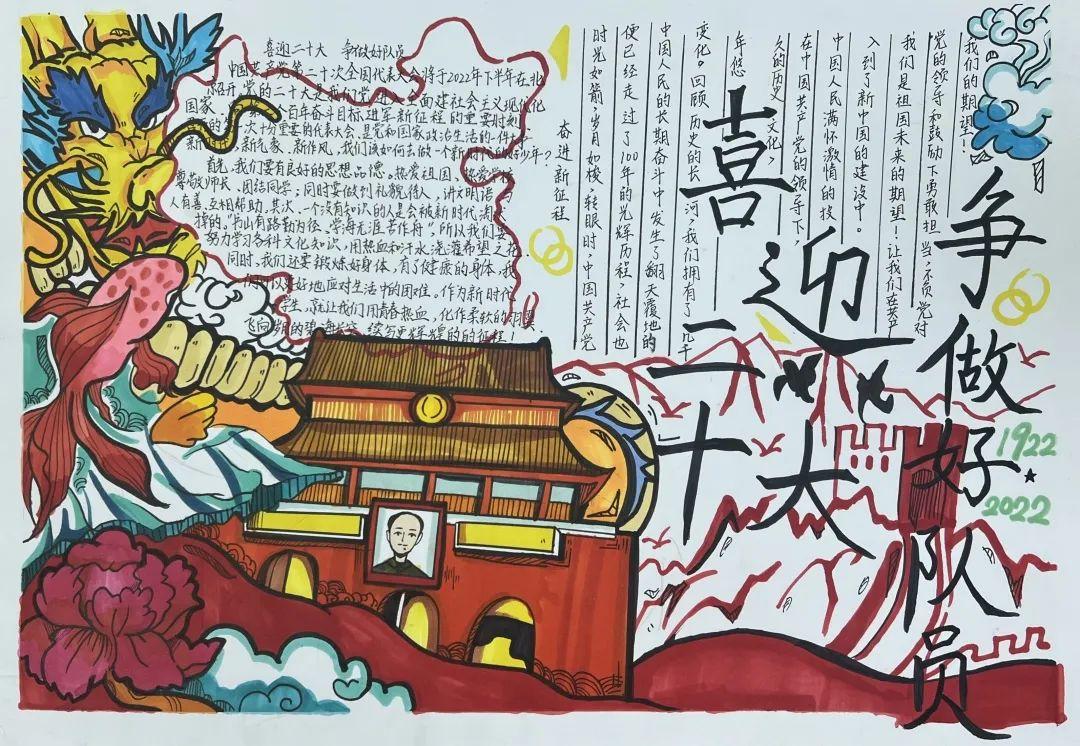 喜迎二十大
争做好队员
1922
2022
喜迎二十大 争做好队员
中国共产党第二十次全国代表大会将于2022年下半年在北
召开，党的二十大是我们党进入全面建社会主义现代化
国家、第 个百年奋斗目标进军新征程的重要时刻
的 次十分重要的代表大会，是党和国家政治生活的一件大
新 、新气象、新作风，我们该如何去做一个新时代的好少年？
首先，我们要有良好的思想品德。热爱祖国，热爱学校
尊敬师长，团结同学；同时要做到礼貌待人，讲文明语
人有善，互相帮助。其次，一个没有知识的人是会被新时代淘汰
掉的，“书山有路勤为径，学海无涯苦作舟”，所以我们要
努力学习各科文化知识，用热血和汗水浇灌希望之花。
同时，我们还要锻炼好身体，有了健康的身体，我
们可以更好地应对生活中的困难。作为新时代
学生，就让我们用青春热血，化作柔软的羽翼
飞向 明的碧海 续写更辉煌的的征程！
奋进新征程
时光如箭，岁月如梭，转眼时，中国共产党
便已经走过了100年的光辉历程，社会也
中国人民的长期奋斗中发生了翻天覆地的
变化。回顾历史的长河，我们拥有了几千
年悠
久的历史文化，
在中国共产党的领导下，
中国人民满怀激情的投
入到了新中国的建设中。
我们是祖国未来的期望！让我们在共产
党的领导和鼓励下勇敢担当，不负党对
我们的期望！